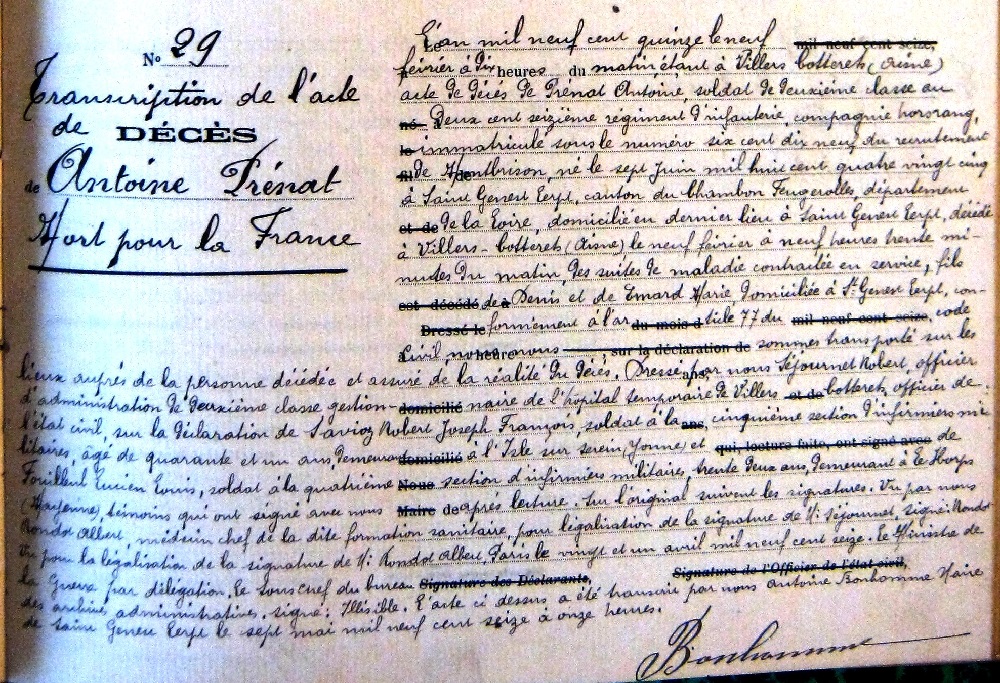 N° 29
Transcription de l'acte
de DÉCÈS
de Antoine Prénat
Mort pour la France
L'an mil neuf cent quinze le neuf mil neuf cent seize,
février à dix heures du matin étant à Villers Cotterets (Aisne)
acte de décès de Prénat Antoine, soldat de deuxième classe au
né deux cent seizième régiment d'infanterie, compagnie hors rang,
le immatriculé sous le numéro six cent dix neuf du recrutement
fil de Montbrison, né le sept Juin mil huit cent quatre vingt cinq
à Saint Genest Lerpt, canton du Chambon Feugerolles, département
et de de la Loire, domicilié en dernier lieu à Saint Genest Lerpt, décédé
à Villers-Cotterets (Aisne) le neuf février à neuf heures trente mi-
nutes du matin, des suites de maladie contractée en service, fils
est décédé de à Denis et de Emard Marie, domiciliée à St Genest Lerpt, con-
Dressé le formément à l'ar du mois d ticle 77 du mil neuf cent seize, code
Civil, no heure nous , sur la déclaration de sommes transporté sur les
lieux auprès de la personne décédée et assuré de la réalité du décès. Dressé ans, par nous Séjournet Robert, officier
d'administration de deuxième classe gestion- domicilié naire de l'hôpital temporaire de Villers et de Cotterets, officier de
l'état civil, sur la déclaration de Savioz Robert Joseph François, soldat à la ans, cinquième section d'infirmiers mi-
litaires, âgé de quarante et un ans, demeurant domicilié à l'Isle sur Serein (Yonne) et qui, lecture faite, ont signé avec de
Fouilleul Lucien Louis, soldat à la quatrième Nous section d'infirmiers militaires, trente deux ans, demeurant à Le Horps
(Mayenne), témoins qui ont signé avec nous Maire de après lecture. Sur l'original suivent les signatures. Vu par nous
Rondot Albert, médecin chef de la dite formation sanitaire, pour légalisation de la signature de M: Séjournet, signé: Rondot
Vu pour la légalisation de la signature de M: Rondot Albert, Paris le vingt et un avril mil neuf cent seize. Le Ministre de
la Guerre par délégation, le sous chef du bureau Signature des Déclarants, Signature de l'Officier de l'état civil,
des archives administratives. signé: Illisible. L'acte ci dessus a été transcrit par nous Antoine Bonhomme Maire
de Saint Genest Lerpt le sept mai mil neuf cent seize à onze heures.
Bonhomme